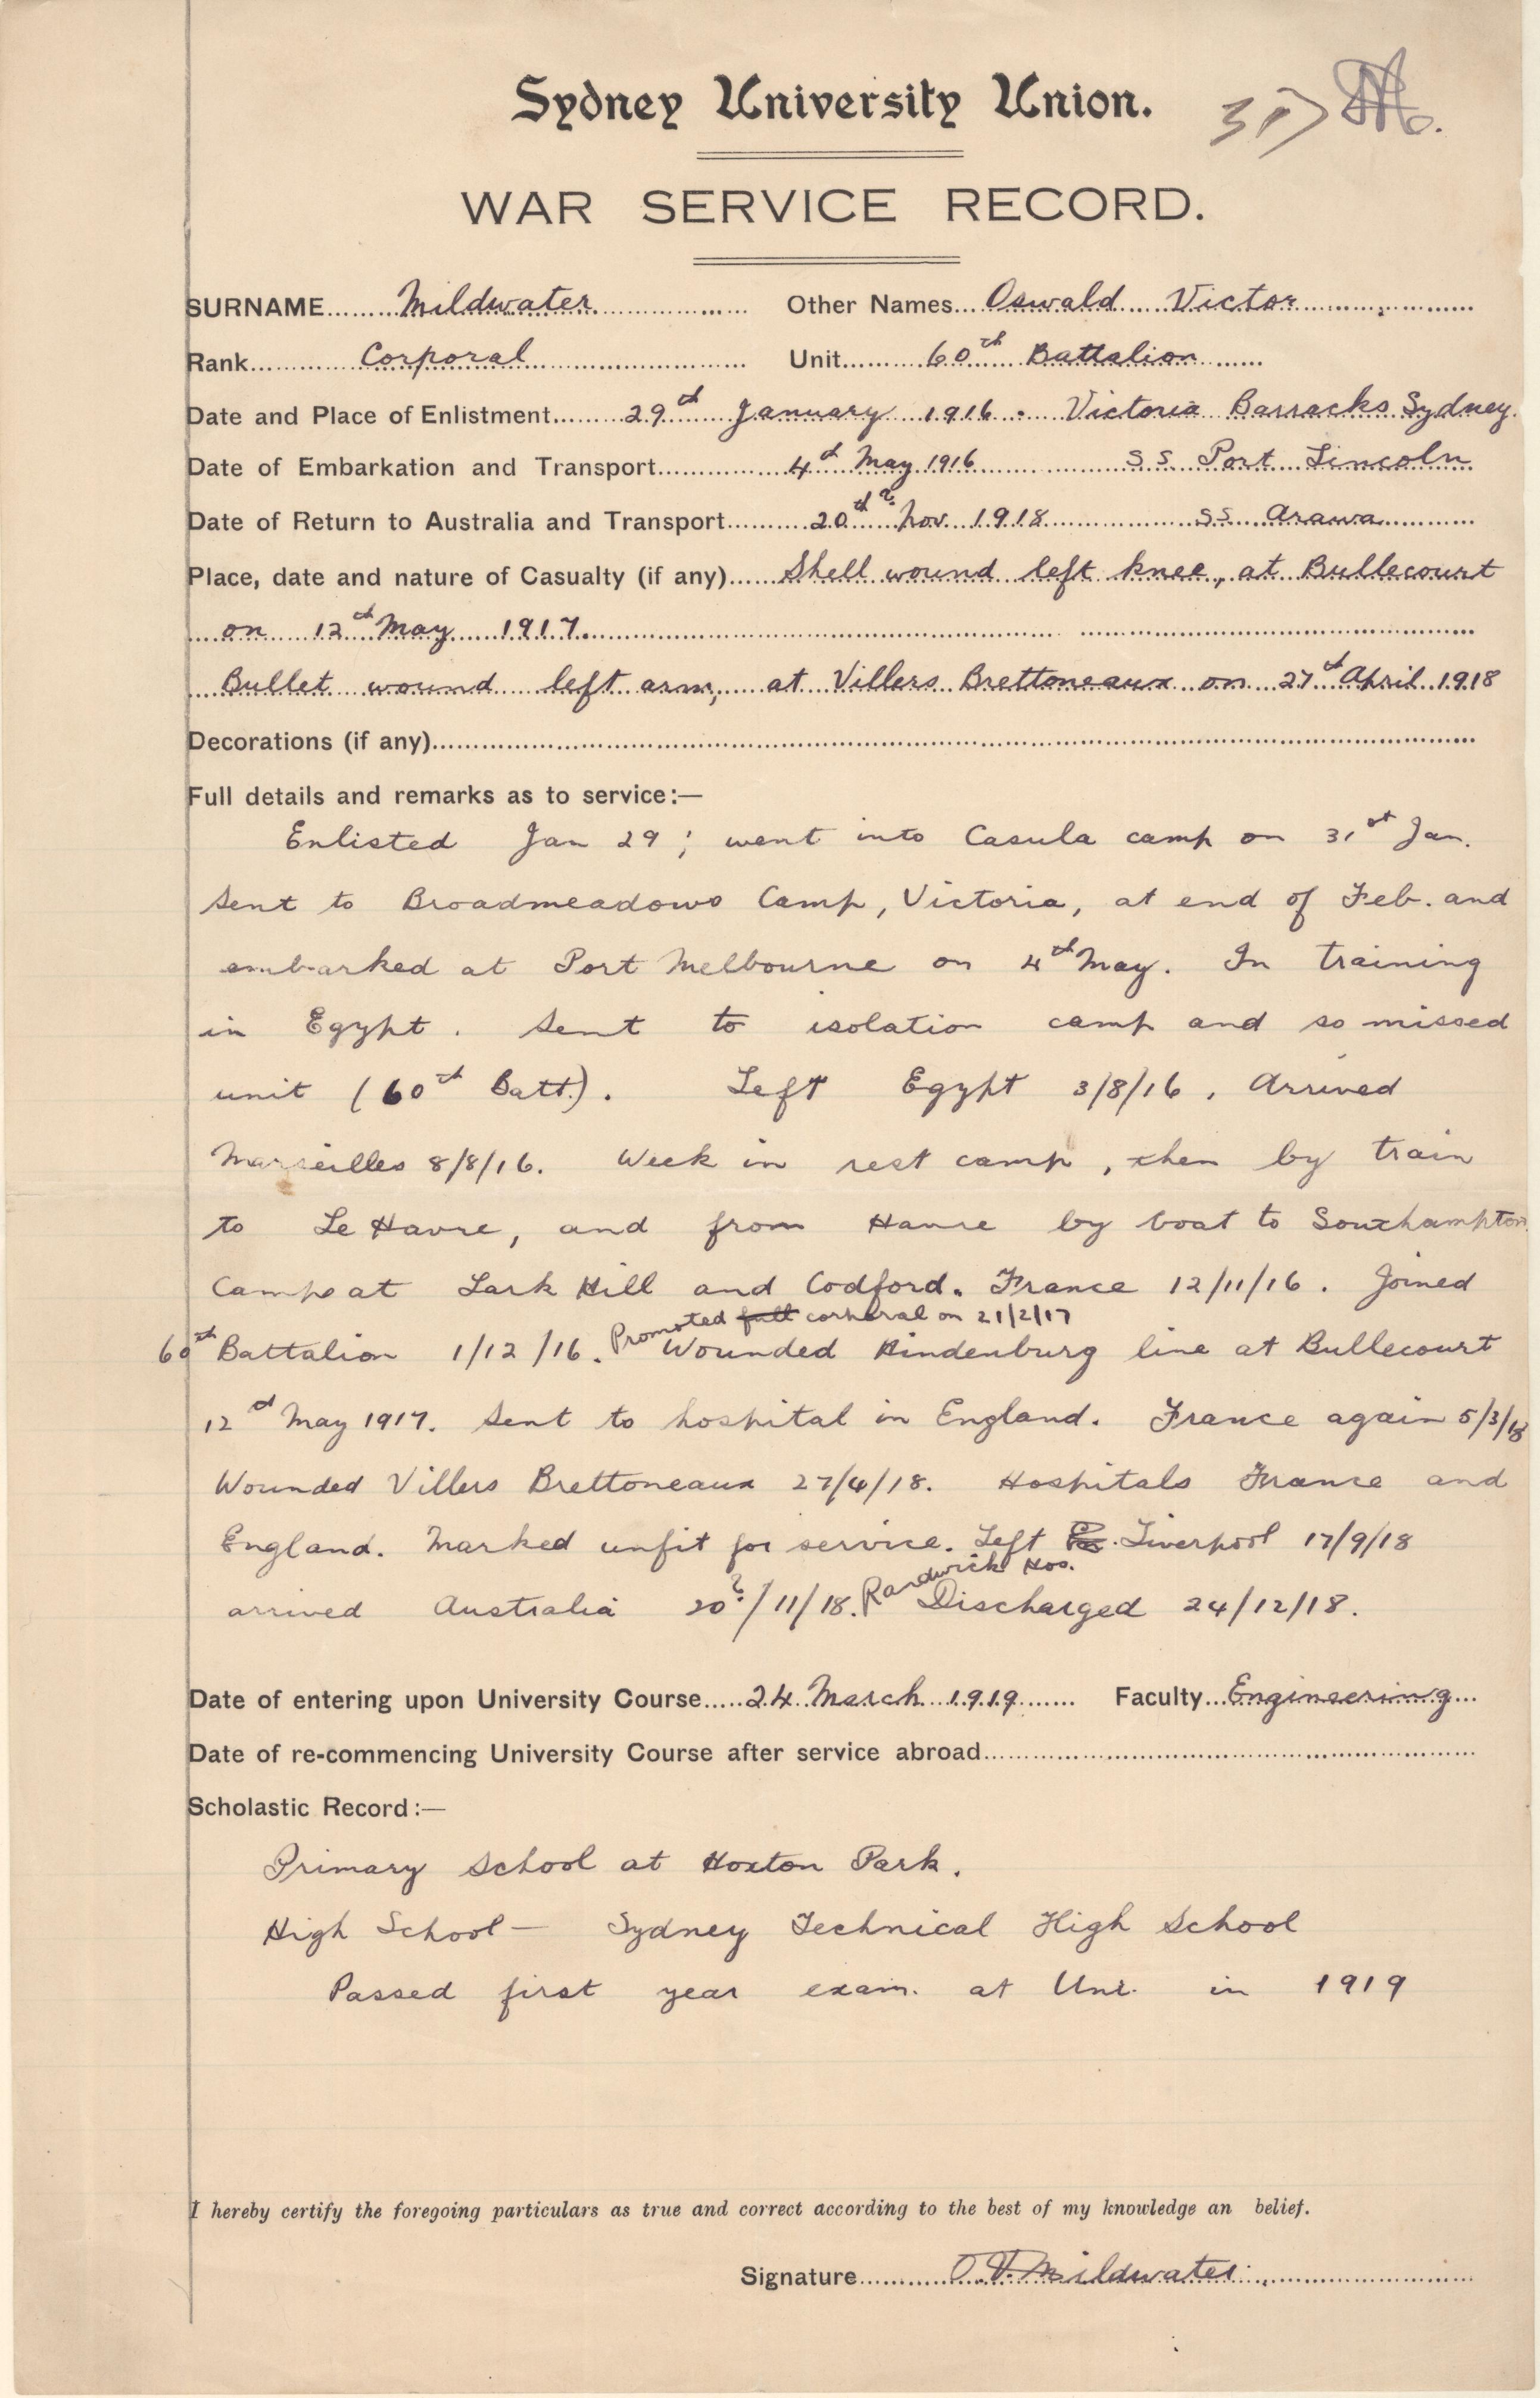 Sydney University Union.
WAR SERVICE RECORD.
SURNAME Mildwater Other Names Oswald Victor
Rank Corporal Unit 60th Battalion
Date and Place of Enlistment 29th January 1916. Victoria Barracks Sydney.
Date of Embarkation and Transport 4th May 1916 SS Port Lincoln
Date of Return to Australia and Transport 20th? Nov. 1918 SS Arawa
Place, date and nature of Casualty (if any) Shell wound left knee, at Bullecourt
on 12th May 1917.
Bullet wound left arm, at Villers Brettoneaux on 27th April 1918
Decorations (if any)
Full details and remarks as to service:—
Enlisted Jan 29; went into Casula camp on 31st Jan.
Sent to Broadmeadows Camp, Victoria, at end of Feb. and
embarked at Port Melbourne on 4th May. In training
in Egypt. Sent to isolation camp and so missed
unit (60th Batt.). Left Egypt 3/8/16, Arrived
Marseilles 8/8/16. Week in rest camp, then by train
to Le Havre, and from Havre by boat to Southampton
Camp at Lark Hill and Codford. France 12/11/16. Joined
Promoted full corporal on 21/2/17
60th Battalion 1/12/16. Wounded Hindenburg line at Bullecourt
12th May 1917. Sent to hospital in England. France again 5/3/18
Wounded Villers Brettoneaux 27/4/18. Hospitals France and
England. Marked unfit for service. Left Liverpool 17/9/18
Randwick Hos.
arrived Australia 20?/11/18. Discharged 24/12/18.
Date of entering upon University Course 24 March 1919 Faculty Engineering
Date of re-commencing University Course after service abroad
Scholastic Record:—
Primary School at Hoxton Park.
High School — Sydney Technical High School
Passed first year exam. at Uni. in 1919
I hereby certify the foregoing particulars as true and correct according to the best of my knowledge an belief.
Signature O.V. Mildwater